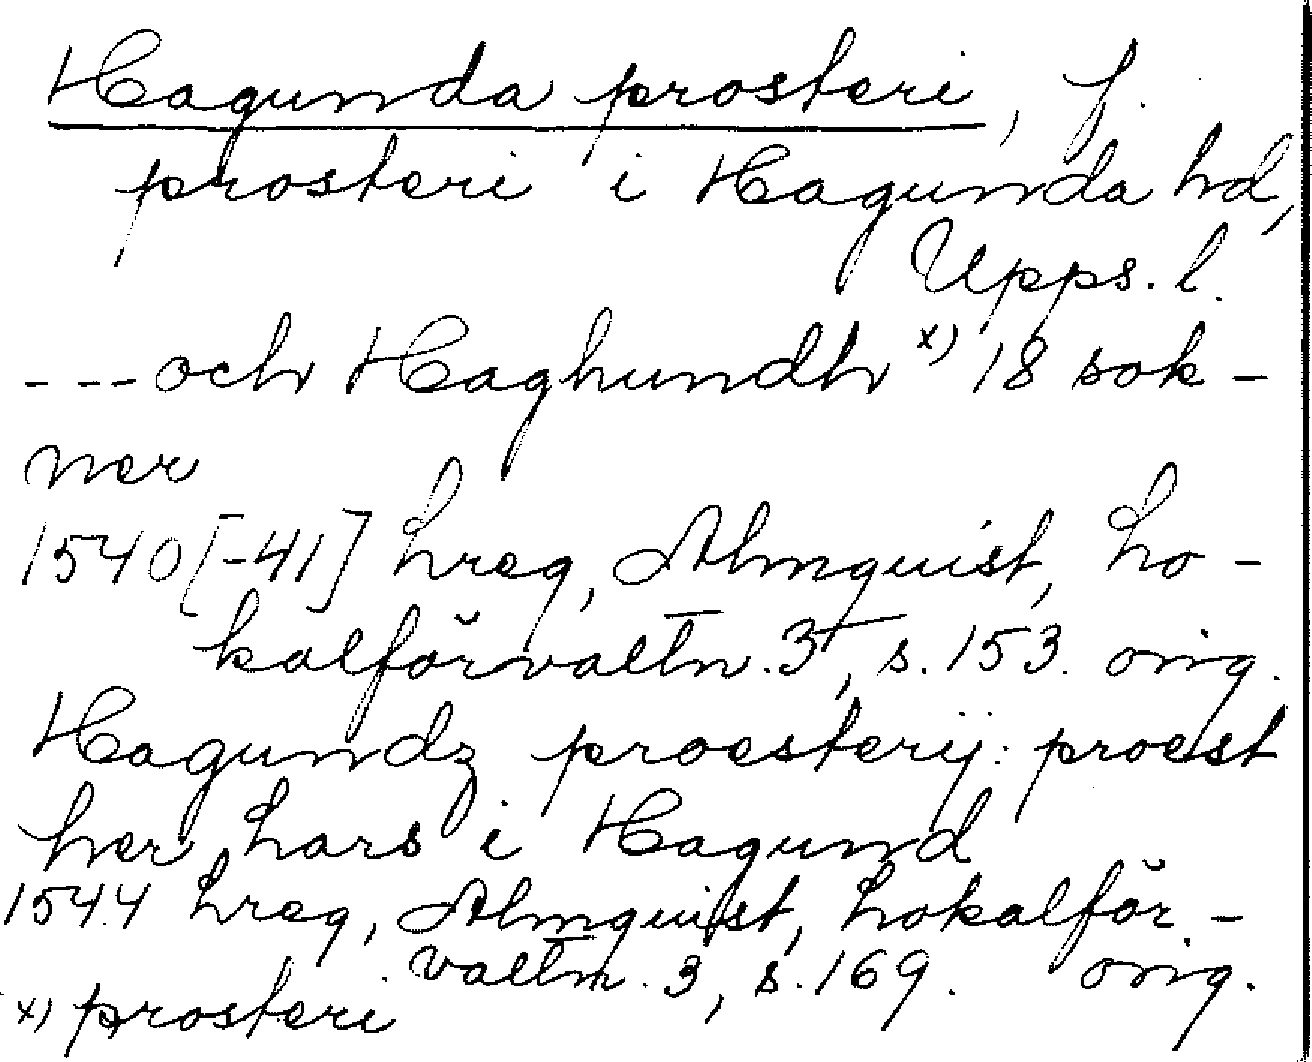 Hagunda prosteri, f.
prosteri i Hagunda hd,
Upps. l.
---och Haghundh x) 18 sok-
ner
1540[-41] Lreg, Almquist, Lo-
kalförvaltn. 3, s. 153. orig.
Hagundz proesterij: proest
her Lars i Hagund
1544 Lreg, Almquist, Lokalför-
valtn. 3, s. 169. orig.
x) prosteri